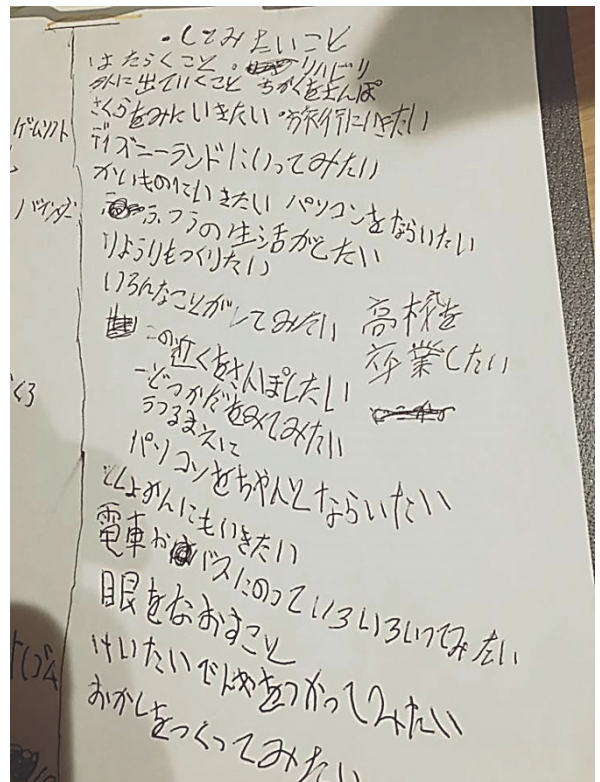 ・してみたいこと
はたらくこと。リハビリ
外に出ていくこと ちかくをさんぽ
さくらをみにいきたい・旅行にいきたい
ディズニーランドにいってみたい
かいものにいきたい パソコンをならいたい
ふつうの生活がしたい
りょうりもつくりたい
いろんなことがしてみたい
高校を
卒業したい
この近くをさんぽしたい
をみてみたい
うつるまえに
パソコンをちゃんとならいたい
としょかんにもいきたい
電車かバスにのっていろいろいってみたい
眼をなおすこと
けいたいでんわをつかってみたい
おかしをつくってみたい
ゲームソフト
バインダー